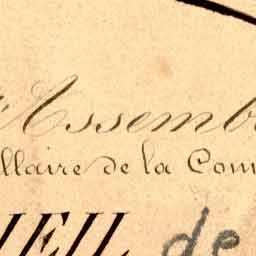 l'Assemb
llaire de la Com
UEIL de